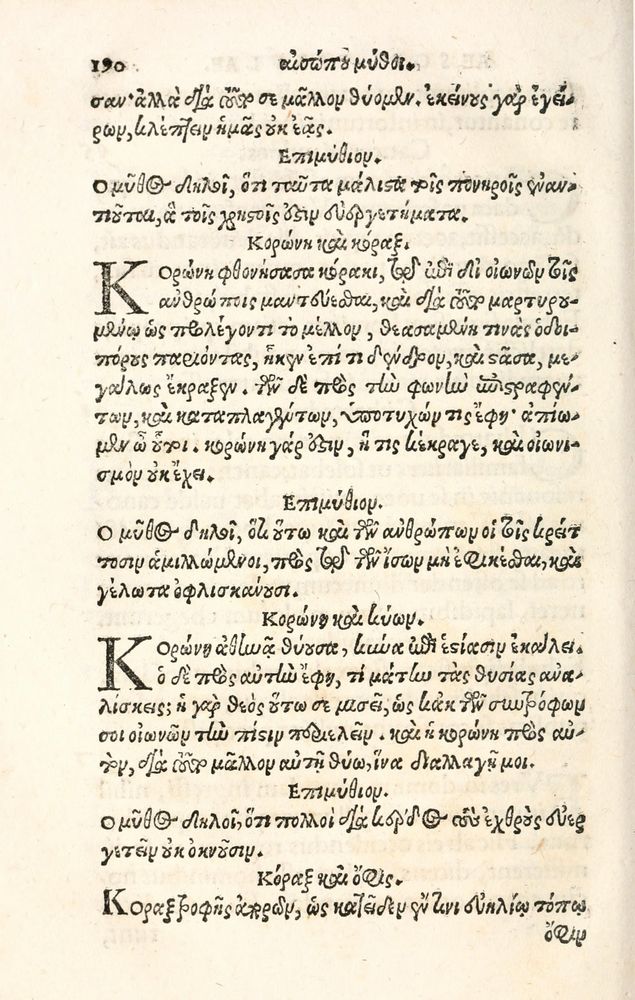 190 αἰσώπου μῦθοι.
σαν· ἀλλὰ διὰ τοῦτό σε μᾶλλον θύομεν. ἐκείνους γὰρ ἐγεί-
ρων, κλέπτειν ἡμᾶς οὐκ ἐᾷς.
Επιμύθιον.
Ο μῦθος δηλοῖ, ὅτι ταῦτα μάλιστα τοῖς πονηροῖς ἐναν-
τιοῦται, ἃ τοῖς χρηστοῖς ἐστιν εὐεργετήματα.
Κορώνη καὶ κόραξ.
Κορώνη φθονήσασα κόρακι, ἐπὶ τῷ δι οἰωνῶν τοῖς
ἀνθρώποις μαντεύεσθαι, καὶ διὰ τοῦτο μαρτυρου-
μένῳ ὡς προλέγοντι τὸ μέλλον, θεασαμένη τινὰς ὁδοι-
πόρους παριόντας, ἧκεν ἐπί τι δένδρον, καὶ στᾶσα, με-
γάλως ἔκραξεν. τῶν δὲ πρὸς τὴν φωνὴν ἐπιστραφέν-
των, καὶ καταπλαγέντων, ὑποτυχών τις ἔφη· ἀπίω-
μεν ὦ οὗτοι. κορώνη γάρ ἐστιν, ἥ τις κέκραγε, καὶ οἰωνι-
σμὸν οὐκ ἔχει.
Επιμύθιον.
Ο μῦθος δηλοῖ, ὅτι οὕτω καὶ τῶν ἀνθρώπων οἱ τοῖς κρείτ
τοσιν ἁμιλλώμενοι, πρὸς τῷ τῶν ἴσων μὴ ἐφικέσθαι, καὶ
γέλωτα ὀφλισκάνουσι.
Κορώνη καὶ κύων.
Κορώνη ἀθηνᾷ θύουσα, κύνα ἐπὶ ἑστίασιν ἐκάλει.
ὁ δὲ πρὸς αὐτὴν ἔφη, τί μάτην τὰς θυσίας ἀνα-
λίσκεις; ἡ γὰρ θεὸς οὕτω σε μισεῖ, ὡς κἀκ τῶν συντρόφων
σοι οἰωνῶν τὴν πίστιν περιελεῖν. καὶ ἡ κορώνη πρὸς αὐ-
τόν, διὰ τοῦτο μᾶλλον αὐτῇ θύω, ἵνα διαλλαγῇ μοι.
Επιμύθιον.
Ο μῦθος δηλοῖ, ὅτι πολλοὶ διὰ κέρδος τοὺς ἐχθροὺς εὐερ
γετεῖν οὐκ ὀκνοῦσιν.
Κόραξ καὶ ὄφις.
Κόραξ τροφῆς ἀπορῶν, ὡς κατεῖδεν ἔν τινι εὐηλίῳ τόπῳ
ὄφιν